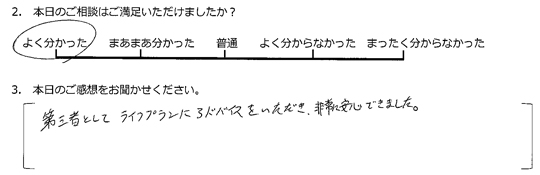 2. 本日のご相談はご満足いただけましたか？
よく分かった まあまあ分かった 普通 よく分からなかった まったく分からなかった
3. 本日のご感想をお聞かせください。
第三者として ライフプランにアドバイスをいただき、非常に安心できました。